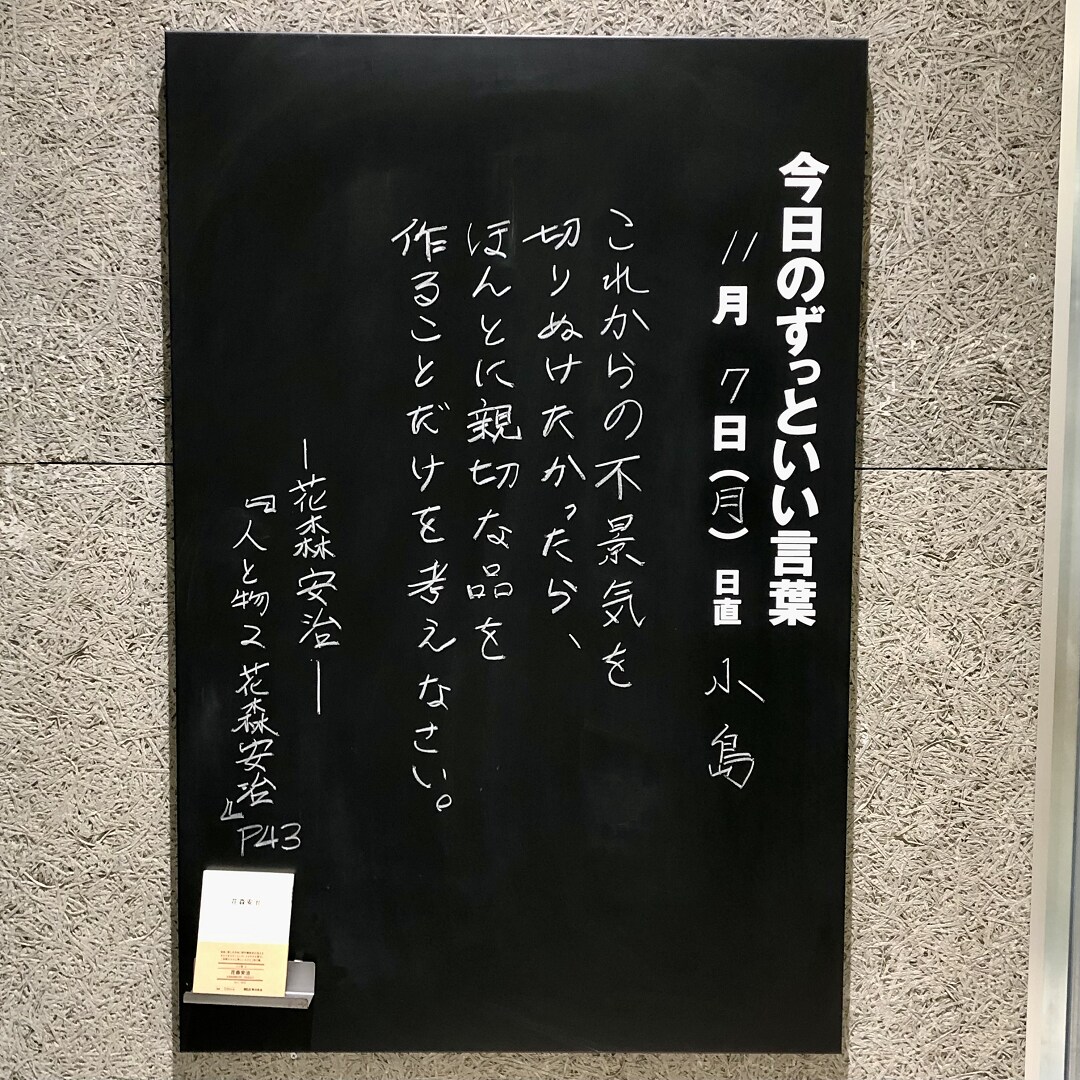 今日のずっといい言葉
11月7日(月) 日直 小島
これからの不景気を
切りぬけたかったら、
ほんとに親切な品を
作ることだけを考えなさい。
―花森安治―
『人と物2 花森安治』
P43
花森安治
花森安治